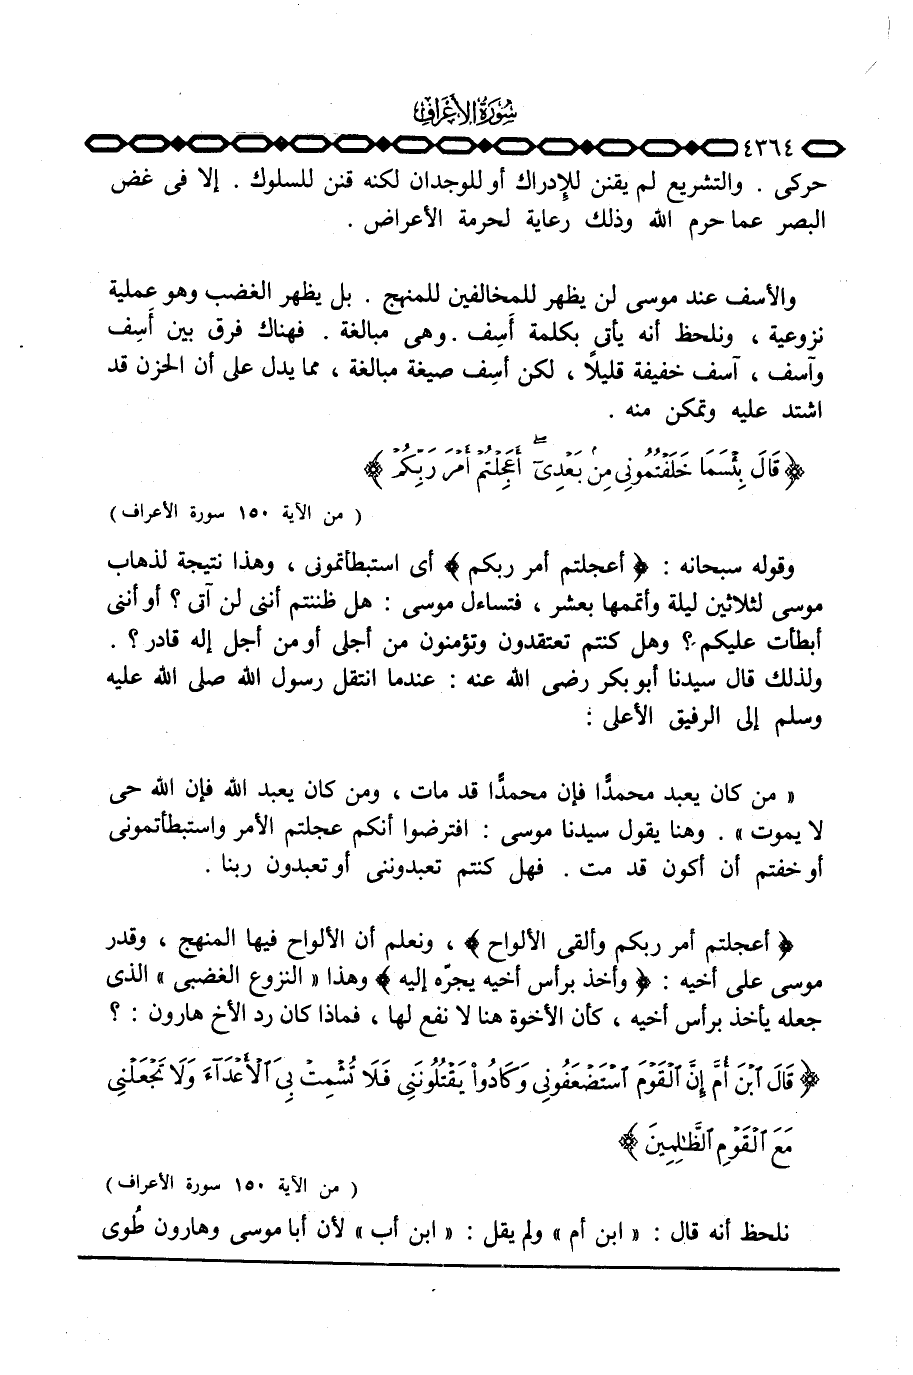 سُورَةُ الأَعْرَافِ
٤٣٦٤
حركى . والتشريع لم يقنن للإدراك أو للوجدان لكنه قنن للسلوك . إلا فى غض
البصر عما حرم الله وذلك رعاية لحرمة الأعراض .
والأسف عند موسى لن يظهر للمخالفين للمنهج . بل يظهر الغضب وهو عملية
نزوعية ، ونلحظ أنه يأتى بكلمة أَسِف . وهى مبالغة . فهناك فرق بين أَسِف
وآسف ، آسف خفيفة قليلاً ، لكن أسِف صيغة مبالغة ، مما يدل على أن الحزن قد
اشتد عليه وتمكن منه .
﴿ قَالَ بِئْسَمَا خَلَفْتُمُونِي مِنۢ بَعْدِيٓ ۖ أَعَجِلْتُمْ أَمْرَ رَبِّكُمْ ﴾
( من الآية ١٥٠ سورة الأعراف )
وقوله سبحانه : ﴿ أعجلتم أمر ربكم ﴾ أى استبطأتمونى ، وهذا نتيجة لذهاب
موسى لثلاثين ليلة وأتممها بعشر ، فتساءل موسى : هل ظننتم أننى لن آتى ؟ أو أننى
أبطأت عليكم ؟ وهل كنتم تعتقدون وتؤمنون من أجلى أو من أجل إله قادر ؟ .
ولذلك قال سيدنا أبو بكر رضى الله عنه : عندما انتقل رسول الله صلى الله عليه
وسلم إلى الرفيق الأعلى :
« من كان يعبد محمدًّا فإن محمدًّا قد مات ، ومن كان يعبد الله فإن الله حى
لا يموت » . وهنا يقول سيدنا موسى : افترضوا أنكم عجلتم الأمر واستبطأتمونى
أو خفتم أن أكون قد مت . فهل كنتم تعبدوننى أو تعبدون ربنا .
﴿ أعجلتم أمر ربكم وألقى الألواح ﴾ ، ونعلم أن الألواح فيها المنهج ، وقدر
موسى على أخيه : ﴿ وأخذ برأس أخيه يجرّه إليه ﴾ وهذا « النزوع الغضبى » الذى
جعله يأخذ برأس أخيه ، كأن الأخوة هنا لا نفع لها ، فماذا كان رد الأخ هارون : ؟
﴿ قَالَ ٱبْنَ أُمَّ إِنَّ ٱلْقَوْمَ ٱسْتَضْعَفُونِي وَكَادُوا۟ يَقْتُلُونَنِي فَلَا تُشْمِتْ بِيَ ٱلْأَعْدَآءَ وَلَا تَجْعَلْنِي
مَعَ ٱلْقَوْمِ ٱلظَّٰلِمِينَ ﴾
( من الآية ١٥٠ سورة الأعراف )
نلحظ أنه قال : « ابن أم » ولم يقل : « ابن أب » لأن أبا موسى وهارون طُوى